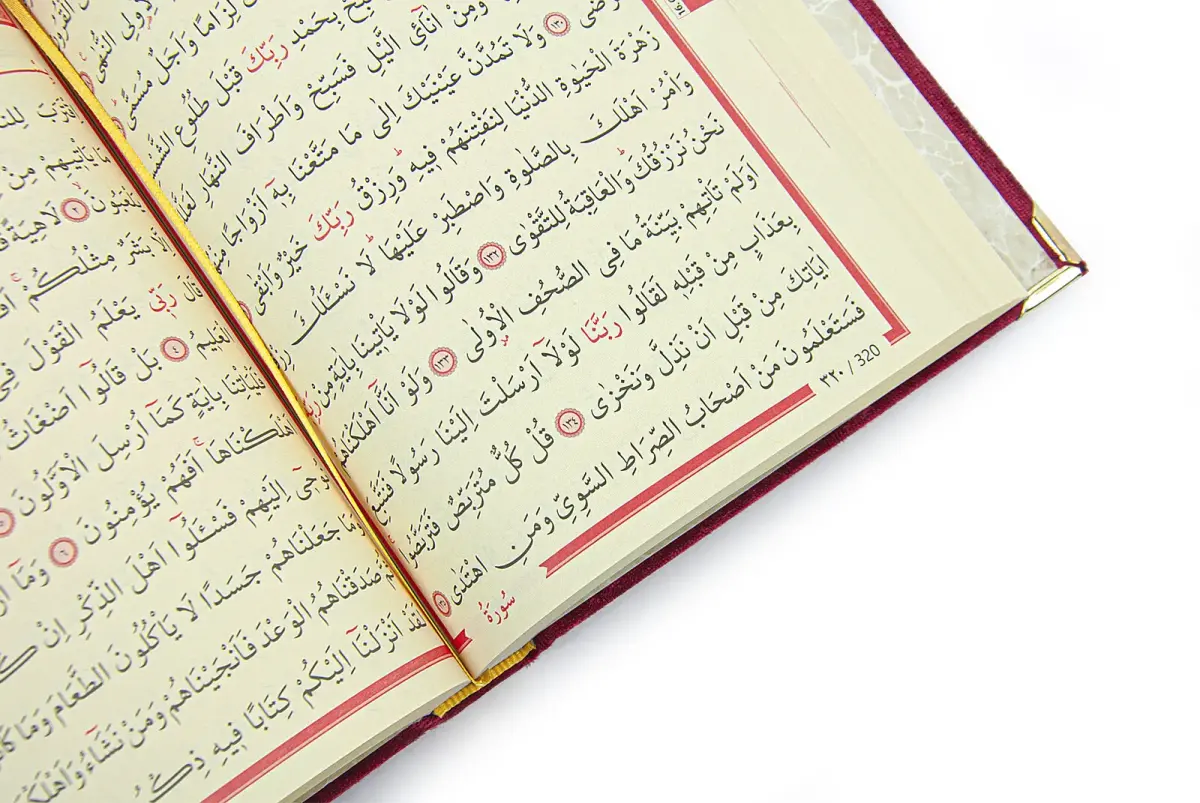 النُّهٰى
لِزَامًا وَاَجَلٌ مُسَمًّى
بِحَمْدِ رَبِّكَ قَبْلَ طُلُوعِ الشَّمْسِ
وَمِنْ اٰنَٓائِ الَّيْلِ فَسَبِّحْ وَاَطْرَافَ النَّهَارِ
١٣٠ وَلَا تَمُدَّنَّ عَيْنَيْكَ اِلٰى مَا مَتَّعْنَا بِه۪ٓ اَزْوَاجًا
زَهْرَةَ الْحَيٰوةِ الدُّنْيَا لِنَفْتِنَهُمْ ف۪يهِۜ وَرِزْقُ رَبِّكَ خَيْرٌ وَاَبْقٰى
وَاْمُرْ اَهْلَكَ بِالصَّلٰوةِ وَاصْطَبِرْ عَلَيْهَاۜ لَا نَسْـَٔلُكَ
نَحْنُ نَرْزُقُكَۜ وَالْعَاقِبَةُ لِلتَّقْوٰى ١٣٢ وَقَالُوا لَوْلَا يَاْت۪ينَا بِاٰيَةٍ مِنْ
اَوَلَمْ تَاْتِهِمْ بَيِّنَةُ مَا فِي الصُّحُفِ الْاُو۫لٰى ١٣٣ وَلَوْ اَنَّٓا اَهْلَكْنَاهُمْ
بِعَذَابٍ مِنْ قَبْلِه۪ لَقَالُوا رَبَّنَا لَوْلَٓا اَرْسَلْتَ اِلَيْنَا رَسُولًا فَنَتَّبِعَ
اٰيَاتِكَ مِنْ قَبْلِ اَنْ نَذِلَّ وَنَخْزٰى ١٣٤ قُلْ كُلٌّ مُتَرَبِّصٌ فَتَرَبَّصُوا
فَسَتَعْلَمُونَ مَنْ اَصْحَابُ الصِّرَاطِ السَّوِيِّ وَمَنِ اهْتَدٰى ١٣٥
٣٢٠ / 320
سُورَةُ
مَا يَاْت۪يهِمْ مِنْ
٢ لَاهِيَةً
مِثْلُكُمْۚ
قَالَ رَبّ۪ي يَعْلَمُ الْقَوْلَ فِي
٤ بَلْ قَالُٓوا اَضْغَاثُ
فَلْيَاْتِنَا بِاٰيَةٍ كَمَٓا اُرْسِلَ الْاَوَّلُونَ ٥
اَهْلَكْنَاهَاۚ اَفَهُمْ يُؤْمِنُونَ ٦ وَمَٓا
اِلَيْهِمْ فَسْـَٔلُٓوا اَهْلَ الذِّكْرِ اِنْ
وَمَا جَعَلْنَاهُمْ جَسَدًا لَا يَاْكُلُونَ الطَّعَامَ وَمَا
صَدَقْنَاهُمُ الْوَعْدَ فَاَنْجَيْنَاهُمْ وَمَنْ نَشَٓاءُ
لَقَدْ اَنْزَلْنَٓا اِلَيْكُمْ كِتَابًا ف۪يهِ